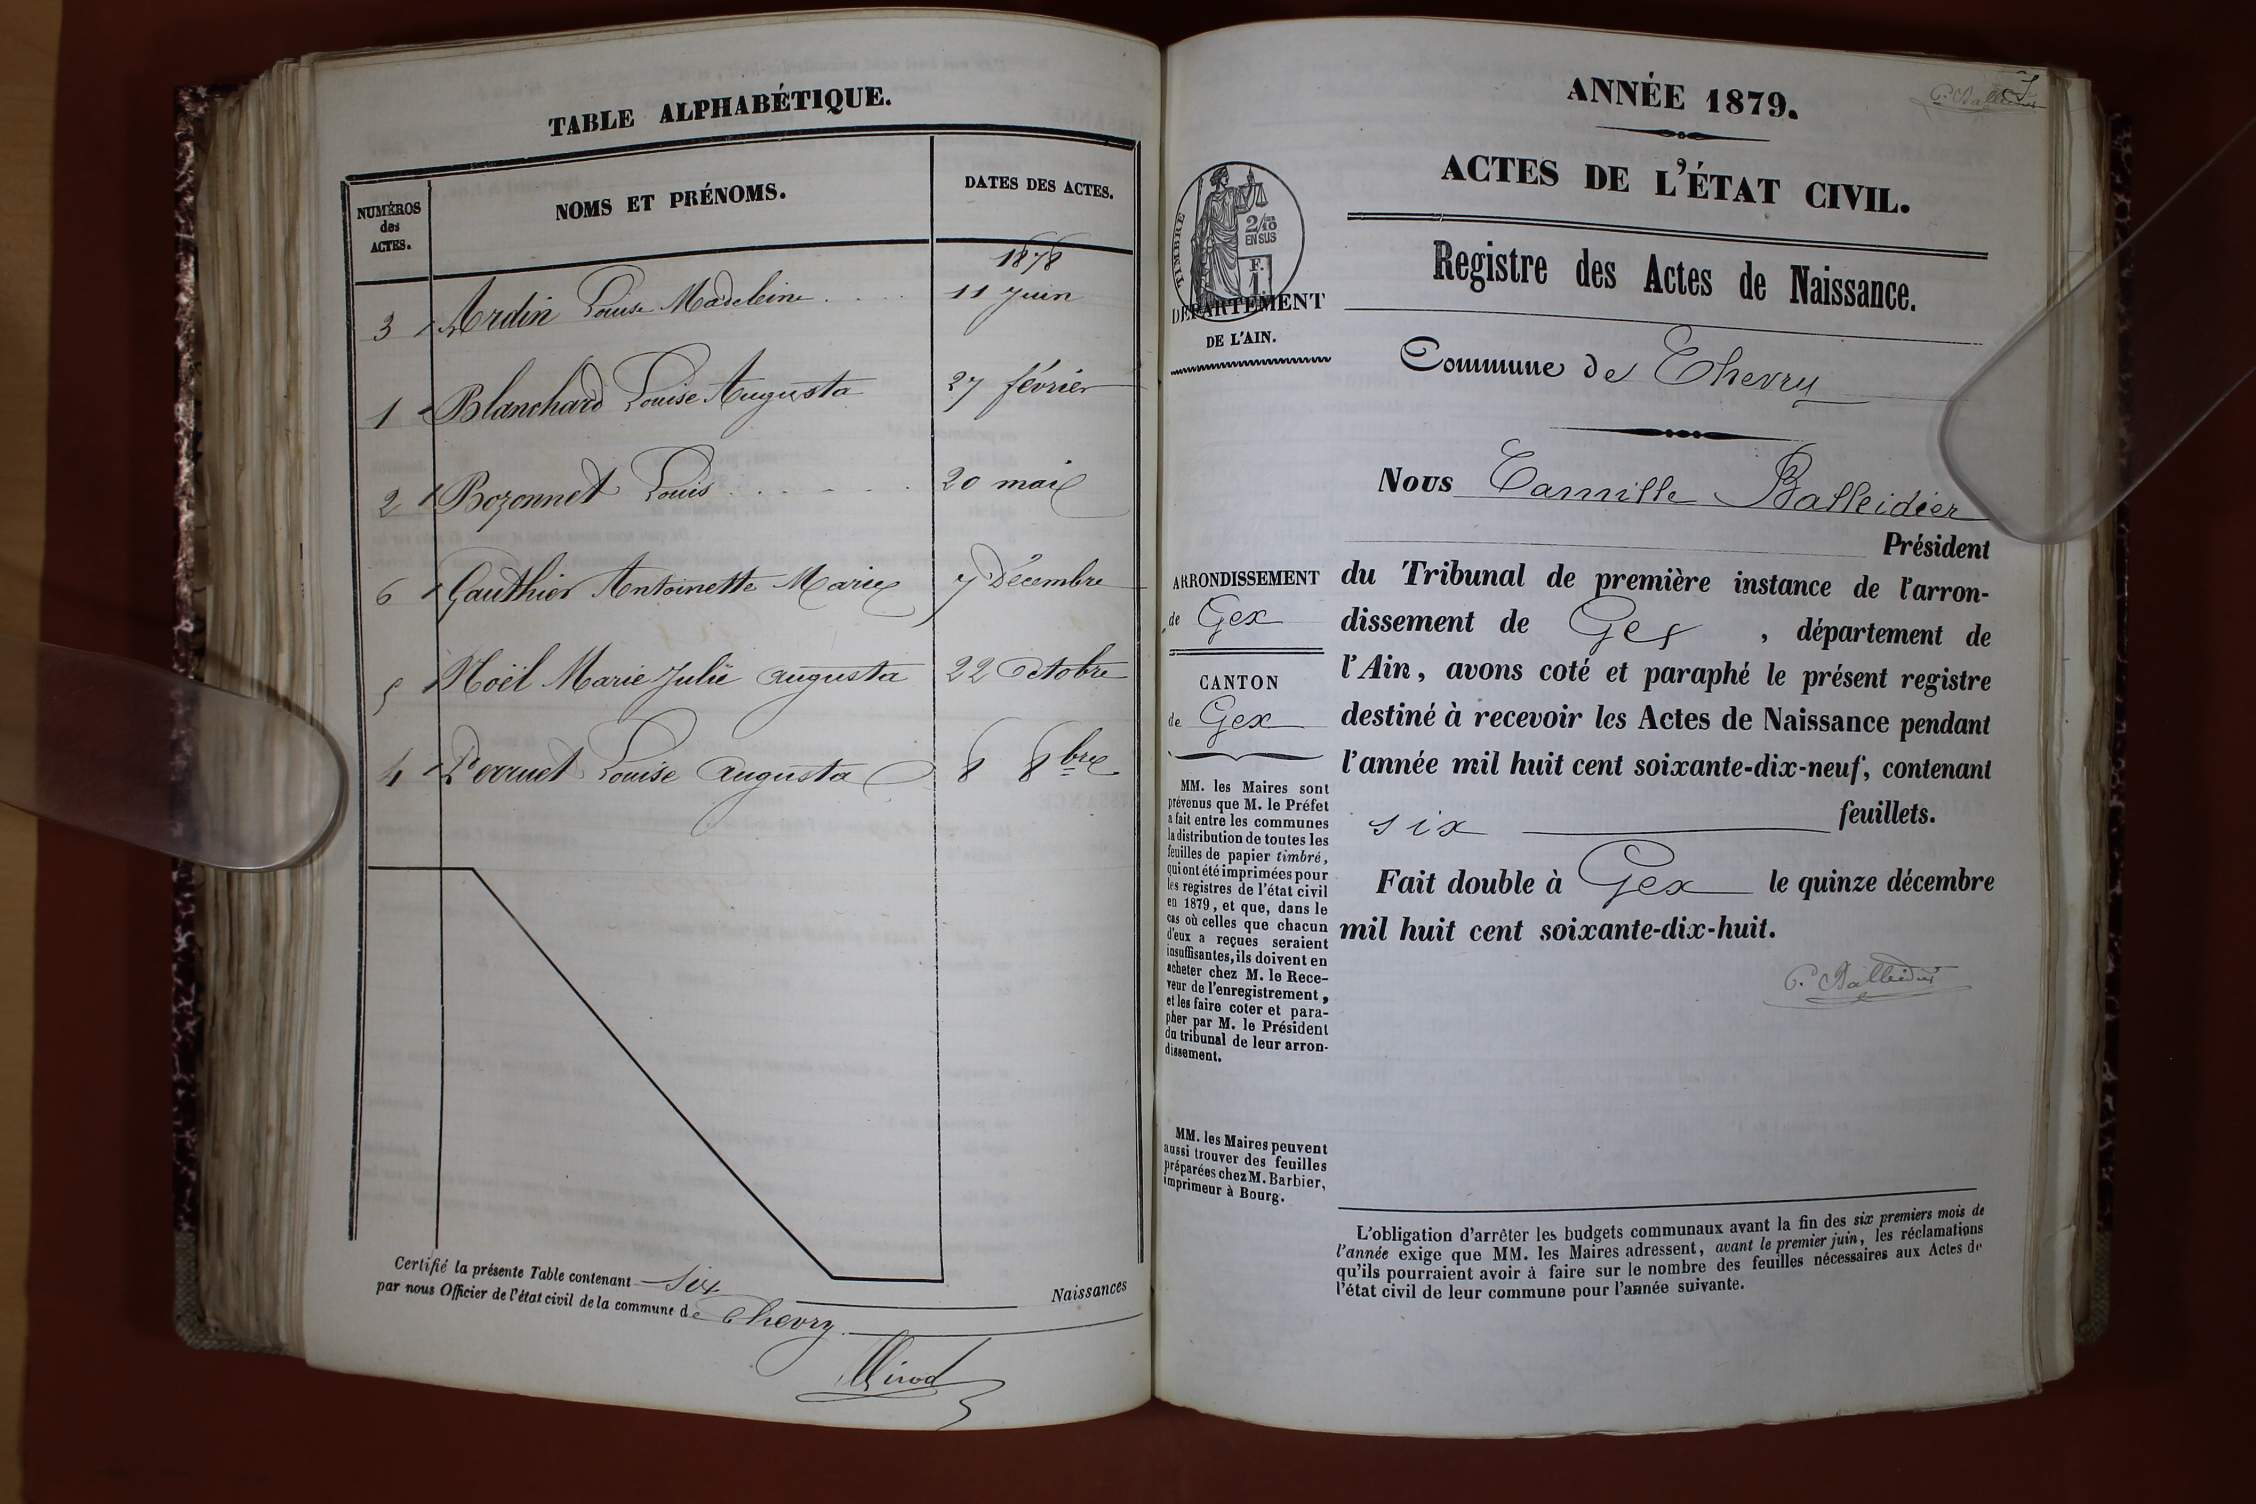 TABLE ALPHABÉTIQUE.
NUMÉROS
des
ACTES.
NOMS ET PRÉNOMS.
DATES DES ACTES.
1878
3 Ardin Louise Madeleine 11 Juin
1 Blanchard Louise Augusta 27 février
2 Bozonnet Louis 20 mai
6 Gauthier Antoinette Marie 7 Décembre
5 Noël Marie Julie Augusta 22 Octobre
4 Perruet Louise Augusta 8 8bre
Certifié la présente Table contenant six Naissances
par nous Officier de l'état civil de la commune de Chevry
Girod
C. Balleidier
ANNÉE 1879.
ACTES DE L'ÉTAT CIVIL.
Registre des Actes de Naissance.
TIMBRE
2/10
EN SUS
F.
1
DÉPARTEMENT
DE L'AIN.
Commune de Chevry
ARRONDISSEMENT
de Gex
CANTON
de Gex
MM. les Maires sont
prévenus que M. le Préfet
a fait entre les communes
la distribution de toutes les
feuilles de papier timbré,
qui ont été imprimées pour
les registres de l'état civil
en 1879, et que, dans le
cas où celles que chacun
d'eux a reçues seraient
insuffisantes, ils doivent en
acheter chez M. le Rece-
veur de l'enregistrement,
et les faire coter et para-
pher par M. le Président
du tribunal de leur arron-
dissement.
MM. les Maires peuvent
aussi trouver des feuilles
préparées chez M. Barbier,
imprimeur à Bourg.
Nous Camille Balleidier
Président
du Tribunal de première instance de l'arron-
dissement de Gex, département de
l'Ain, avons coté et paraphé le présent registre
destiné à recevoir les Actes de Naissance pendant
l'année mil huit cent soixante-dix-neuf, contenant
six feuillets.
Fait double à Gex le quinze décembre
mil huit cent soixante-dix-huit.
C. Balleidier
L'obligation d'arrêter les budgets communaux avant la fin des six premiers mois de
l'année exige que MM. les Maires adressent, avant le premier juin, les réclamations
qu'ils pourraient avoir à faire sur le nombre des feuilles nécessaires aux Actes de
l'état civil de leur commune pour l'année suivante.